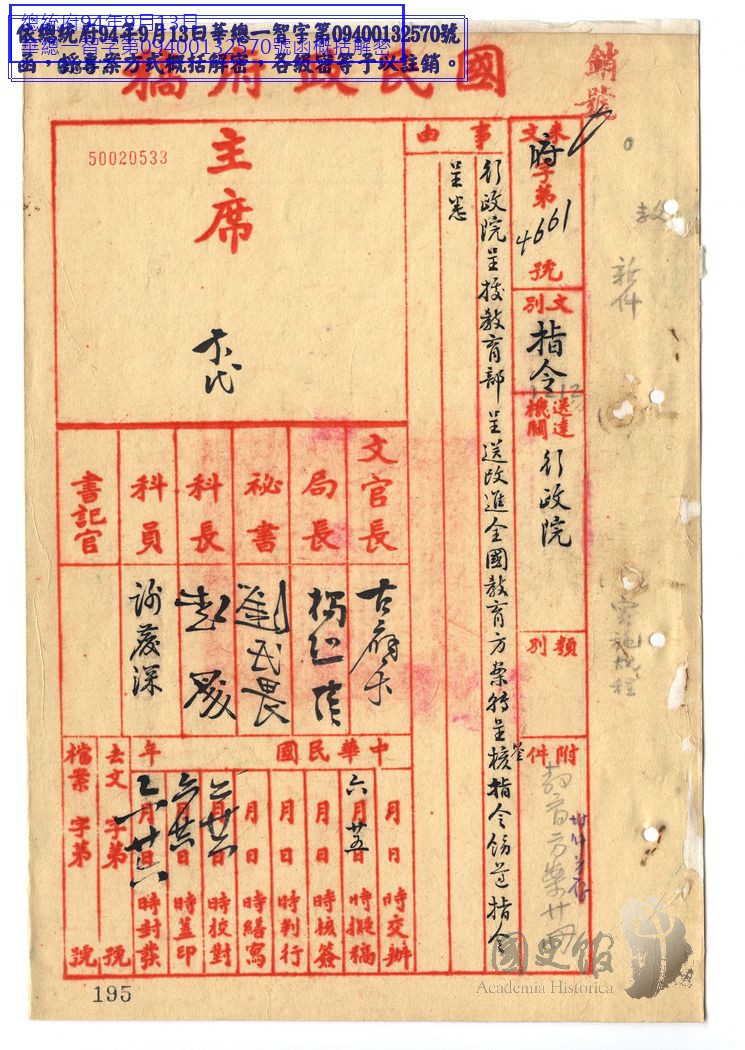 總統府94年9月13日
華總一智字第09400132570號函概括解密
依總統府94年9月13日華總一智字第09400132570號
函，採專案方式概括解密，各級密等予以註銷。
國民政府稿
銷號
來文
府字第4661號
文別
指令
送達機關
行政院
類別
附件
教育方案廿冊
附件並存
事由
行政院呈據教育部呈送改進全國教育方案轉呈鑒核指令飭遵指令
呈悉
主席
50020533
文官長
局長
秘書
科長
科員
書記官
古應芬
楊熙績
劉民畏
中華民國 年
月 日 時交辦
六月廿五日 時擬稿
月 日 時核簽
月 日 時判行
月 日 時繕寫
六月廿六日 時校對
六月廿六日 時蓋印
月廿六日 時封發
去文 字第 號
檔案 字第 號
195
國史館
Academia Historica